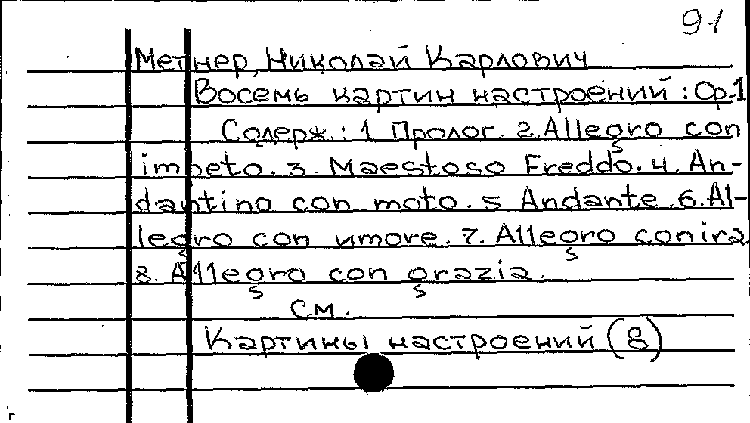 91
Метнер, Николай Карлович
Восемь картин настроений: Op.1
Содерж.: 1 Пролог. 2. Allegro con
impeto. 3. Maestoso Freddo. 4. An-
dantino con moto. 5 Andante. 6. Al-
legro con umore. 7. Allegro con ira
8. Allegro con grazia.
См.
Картины настроений (8)